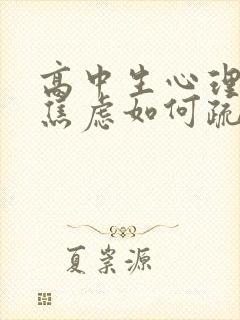 高中生心理
焦虑如何疏
夏崇源